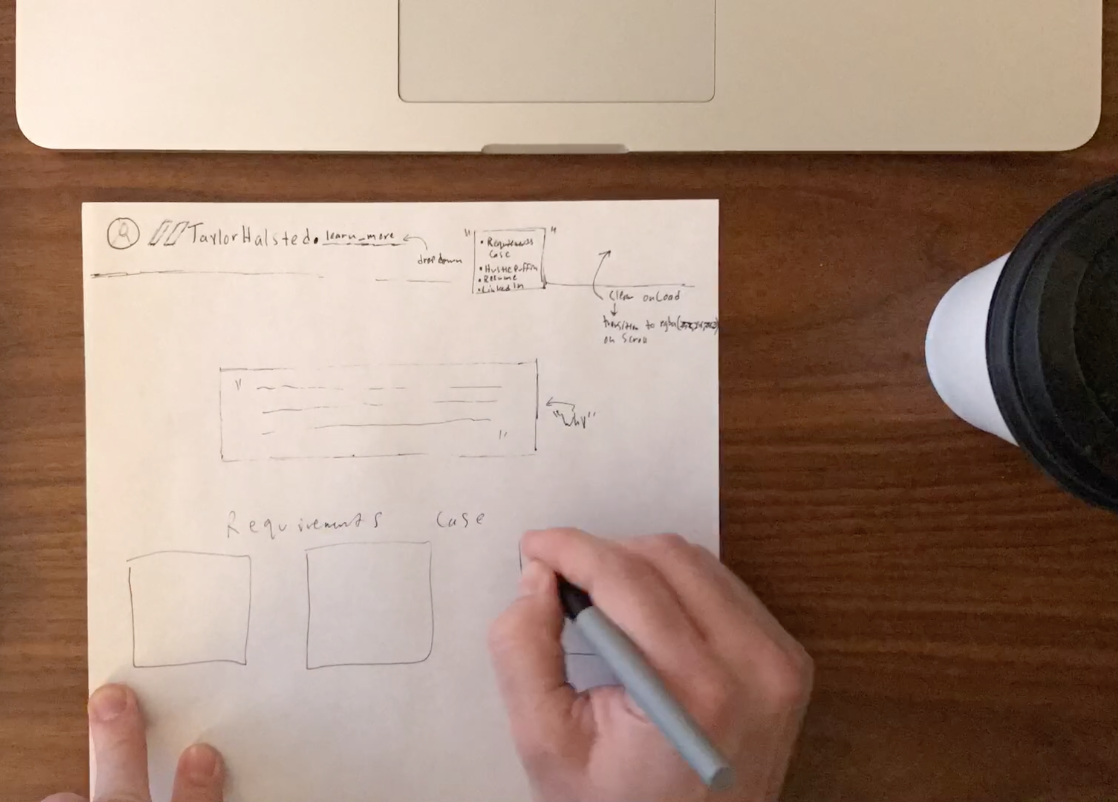 // TaylorHalsted.learn_more
dropdown
"
• Requirements
Case
• HustlePuffin
• Resume
• LinkedIn
"
Clear onLoad
transition to rgba(
on Scroll
"
"
"Why"
Requirements Case